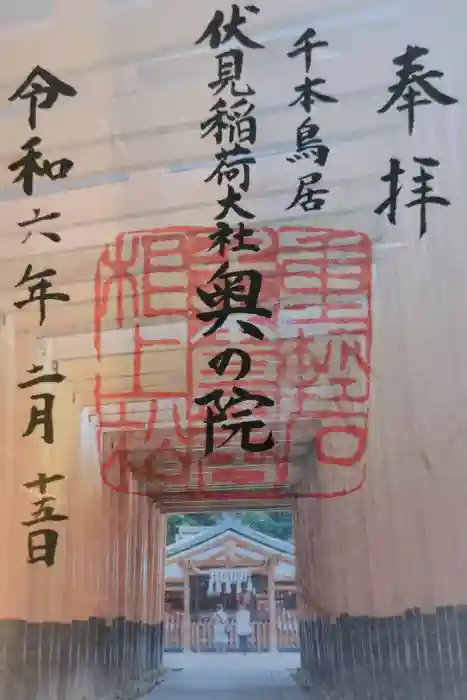 奉拝
千本鳥居
伏見稲荷大社
奥の院
令和六年二月十五日